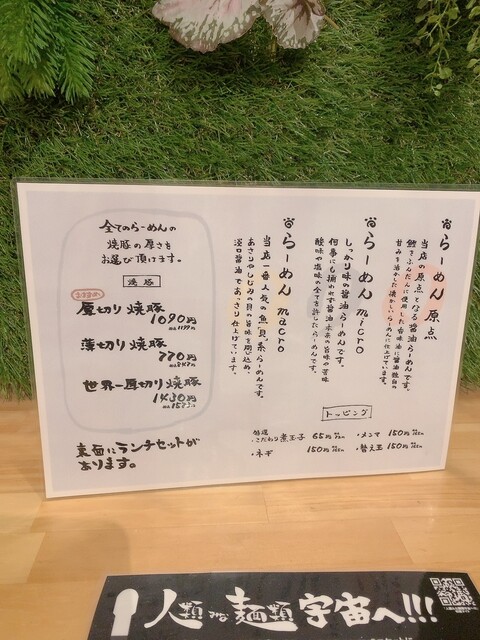 らーめん 原点
当店の原点となる醤油らーめんです。
鯵をふんだんに使用した香味油に醤油独自の
甘みを活かした懐かしいらーめんに仕上げています。
らーめん micro
しっかり味の醤油らーめんです。
何事にも捕われず醤油本来の旨味や苦味
酸味や塩味の全てを許したらーめんです。
らーめん macro
当店一番人気の魚貝系らーめんです。
あさりやしじみの貝の旨味を閉じ込め、
淡口醤油であっさり仕上げています。
トッピング
特選
・こだわり煮玉子 65円
・メンマ 150円
・ネギ 150円
・替え玉 150円
全てのらーめんの
焼豚の厚さを
お選び頂けます。
焼豚
おすすめ
厚切り焼豚
1090円
税込1199円
薄切り焼豚
770円
税込847円
世界一厚切り焼豚
1430円
税込1573円
裏面にランチセットが
あります。
人類みな麺類宇宙へ!!!